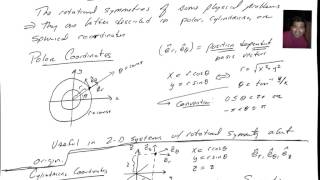 The rotational symmetries of some physical problems
⇒ They are better described in polar, cylindrical, or
spherical coordinates
Polar Coordinates
(êr, êθ) = position dependent
basis vectors
y
êθ
êr
θ = const
r
θ
x
r = const
x = r cosθ
y = r sinθ
r = √x²+y²
θ = tan⁻¹ y/x
Convention: 0 ≤ θ < 2π
-π < θ ≤ π
Useful in 2-D systems w/ rotational symmetry about
origin
Cylindrical Coordinates
x = r cosθ
y = r sinθ
êr, êθ, êz